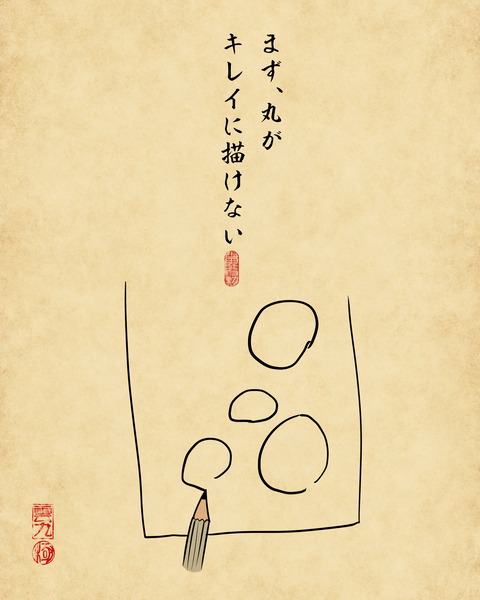 まず、丸が
キレイに描けない